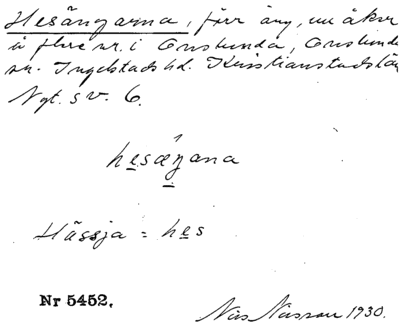 Hesängarna, förr äng, nu åker
å flere nr. i Onslunda, Onslunda
sn. Ingelstads hd. Kristianstads län
Ngt. s v. 6.
hesæŋana
Hässja = hes
Nr 5452.
Nils Nilsson 1930.